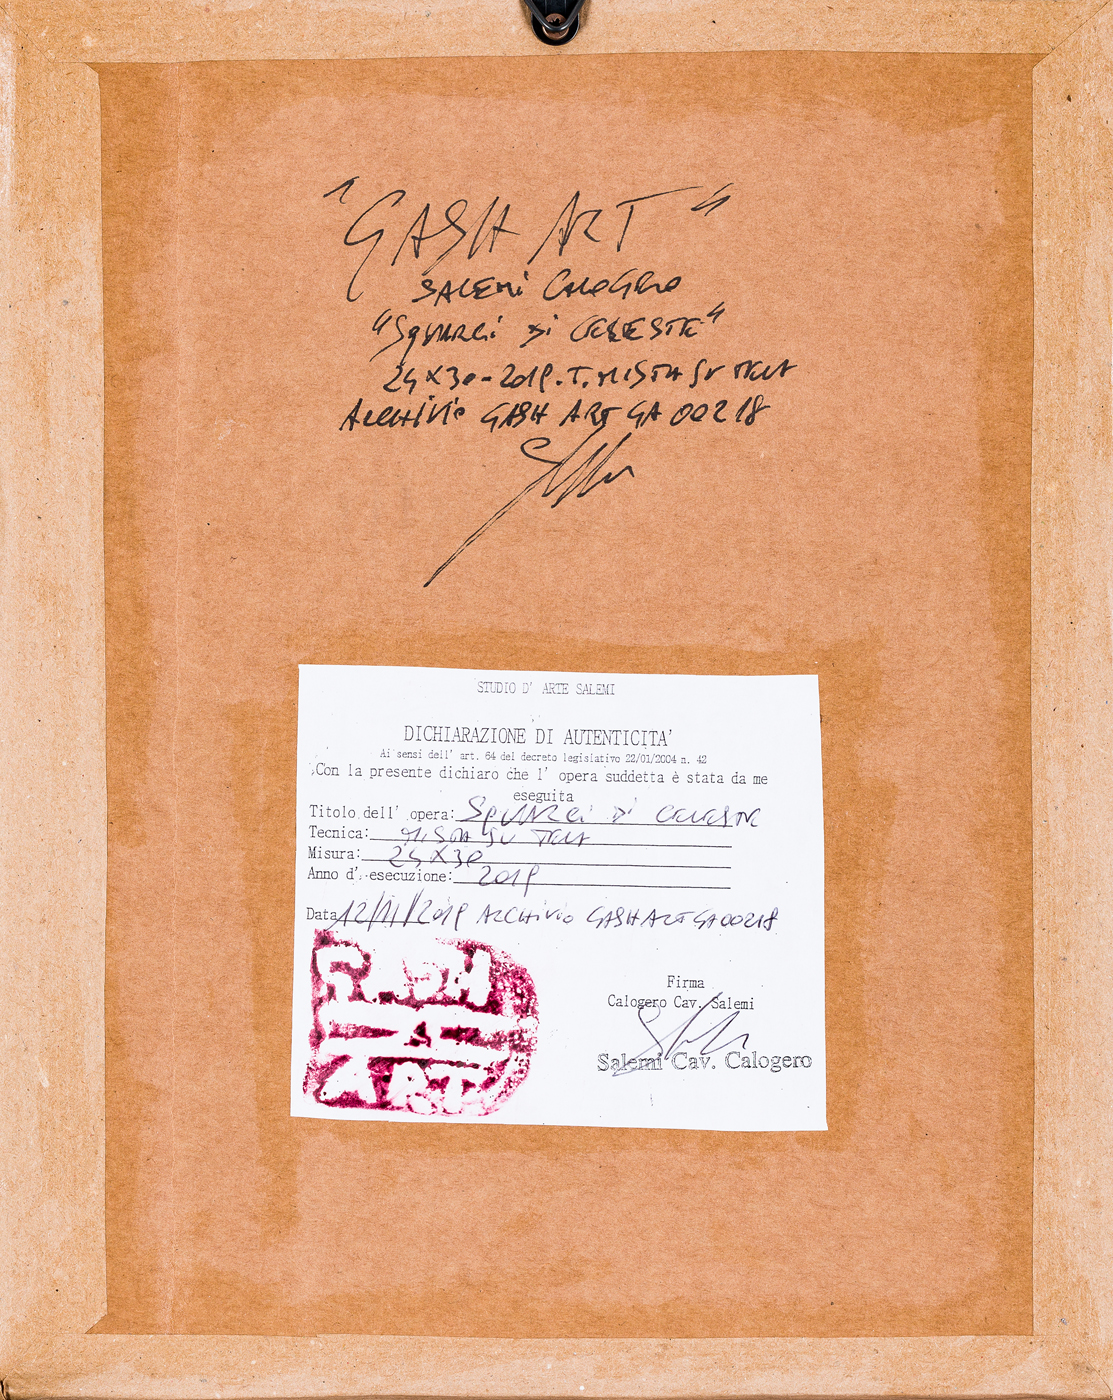 "GASH ART"
SALEMI CALOGERO
"SQUARCI DI CELESTE"
24X30-2019.T.MISTA SU TELA
ARCHIVIO GASH ART GA00218
STUDIO D' ARTE SALEMI
DICHIARAZIONE DI AUTENTICITA'
Ai sensi dell' art. 64 del decreto legislativo 22/01/2004 n. 42
Con la presente dichiaro che l' opera suddetta è stata da me
eseguita
Titolo dell' opera: SQUARCI DI CELESTE
Tecnica: MISTA SU TELA
Misura: 24X30
Anno d' esecuzione: 2019
Data 12/11/2019 ARCHIVIO GASH ART GA00218
GASH
ART
Firma
Calogero Cav. Salemi
Salemi Cav. Calogero